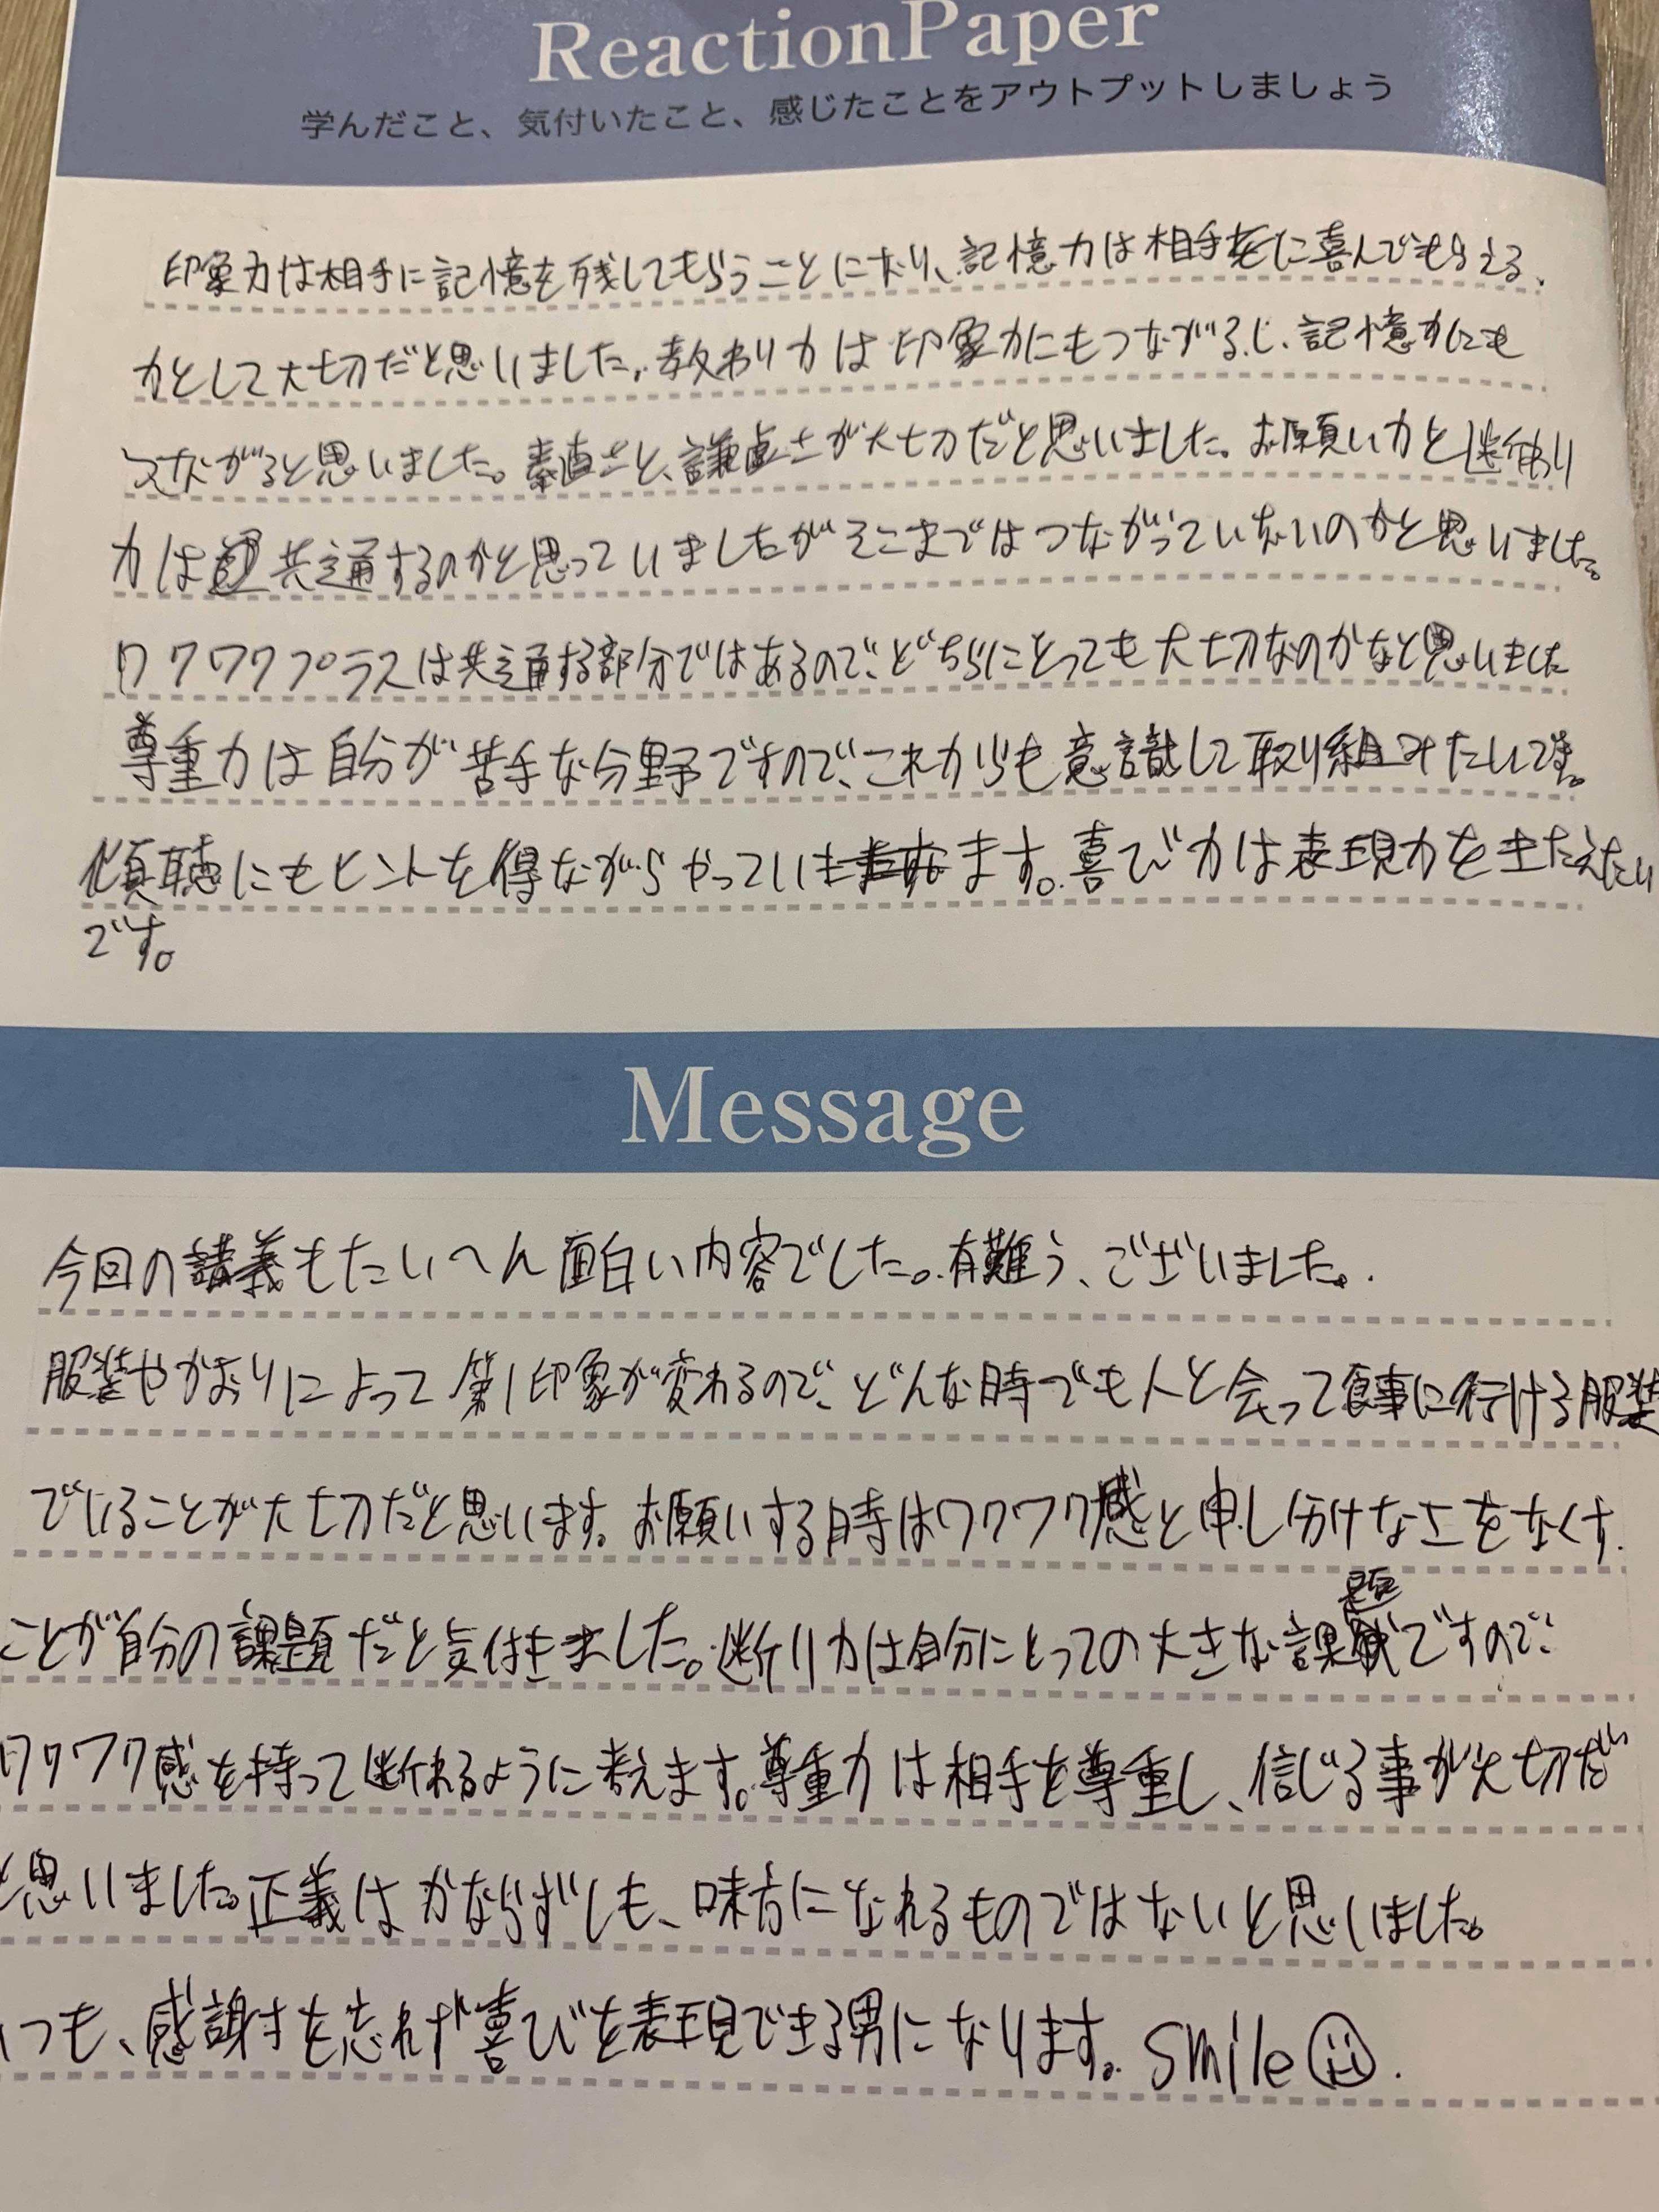 ReactionPaper
学んだこと、気付いたこと、感じたことをアウトプットしましょう
印象力は相手に記憶を残してもらうことになり、記憶力は相手に喜んでもらえる
力として大切だと思いました。教わり力は印象力にもつながるし、記憶力にも
つながると思いました。素直さと、謙虚さが大切だと思いました。お願い力と断わり
力は共通するのかと思っていましたがそこまではつながっていないのかと思いました。
ワクワクプラスは共通する部分ではあるので、どちらにとっても大切なのかなと思いました
尊重力は自分が苦手な分野ですので、これからも意識して取り組みたいです。
傾聴にもヒントを得ながらやっていきます。喜び力は表現力をきたえたい
です。
Message
今回の講義もたいへん面白い内容でした。有難う、ございました。
服装やかおりによって第1印象が変わるので、どんな時でも人と会って食事に行ける服装
でいることが大切だと思います。お願いする時はワクワク感と申し分けなさをなくす
ことが自分の課題だと気付きました。断り力は自分にとっての大きな課題ですので、
ワクワク感を持って断われるように考えます。尊重力は相手を尊重し、信じる事が大切だ
と思いました。正義はかならずしも、味方になれるものではないと思いました。
いつも、感謝を忘れず喜びを表現できる男になります。smile